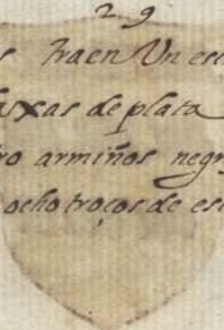 29
s traen Un esc
faxas de plata
ro armiños negr
ocho troços de es